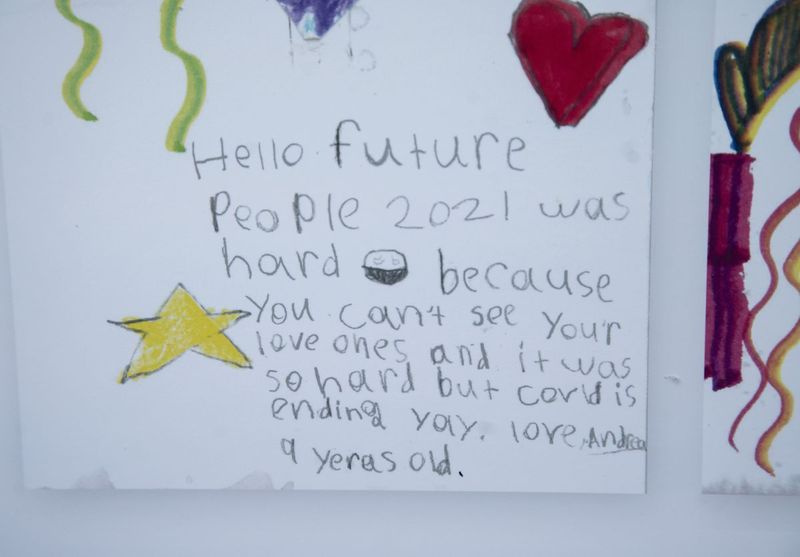 Hello future
People 2021 was
hard because
You can't see your
love ones and it was
so hard but covid is
ending yay. love, Andrea
9 yeras old.